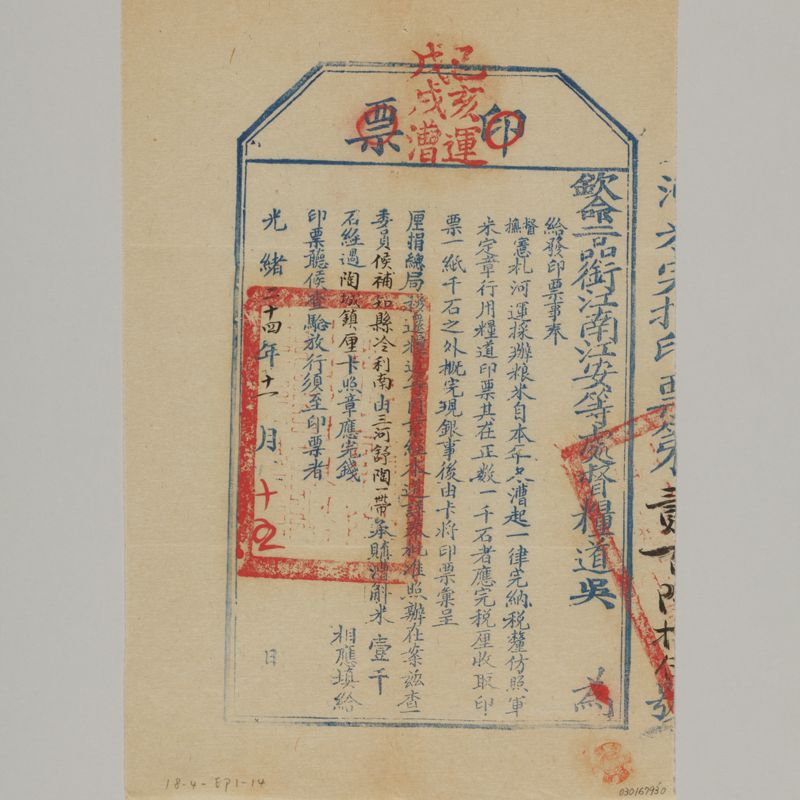 印票
己亥運
戊戌漕
欽命二品銜江南江安等處督糧道吳 為
給發印票事奉
督撫憲札河運採辦粮米自本年冬漕起一律完納稅釐仿照軍
米定章行用糧道印票其在正數一千石者應完稅厘收取印
票一紙千石之外概完現銀事後由卡將印票彙呈
厘捐總局 照辦在案茲查
委員候補知縣冷利南由三河舒陶一帶承購漕斛米壹千
石經過陶城鎮厘卡照章應完錢 相應填給
印票聽候查驗放行須至印票者
光緒二十四年十一月十五日
號
18-4-EP1-14
030167930